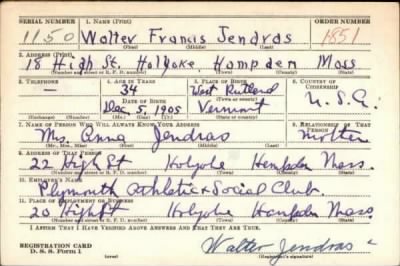 SERIAL NUMBER 1. NAME (Print) ORDER NUMBER
1150 Walter Francis Jendras 1851
(First) (Middle) (Last)
2. ADDRESS (Print)
18 High St, Holyoke, Hampden Mass
(Number and street or R. F. D. number) (Town) (County) (State)
3. TELEPHONE 4. AGE IN YEARS 5. PLACE OF BIRTH 6. COUNTRY OF CITIZENSHIP
— 34 West Rutland
DATE OF BIRTH (Town or county)
Dec 5, 1905 Vermont U.S.A.
(Exchange) (Number) (Mo.) (Day) (Yr.) (State or country)
7. NAME OF PERSON WHO WILL ALWAYS KNOW YOUR ADDRESS 8. RELATIONSHIP OF THAT PERSON
Mrs. Anna Jendras mother
(Mr., Mrs., Miss) (First) (Middle) (Last)
9. ADDRESS OF THAT PERSON
22 High St Holyoke Hampden Mass.
(Number and street or R. F. D. number) (Town) (County) (State)
10. EMPLOYER'S NAME
Plymouth Athletic & Social Club.
11. PLACE OF EMPLOYMENT OR BUSINESS
20 High St Holyoke Hampden Mass
(Number and street or R. F. D. number) (Town) (County) (State)
I AFFIRM THAT I HAVE VERIFIED ABOVE ANSWERS AND THAT THEY ARE TRUE.
REGISTRATION CARD
D. S. S. Form 1
Walter Jendras
(Registrant's signature)